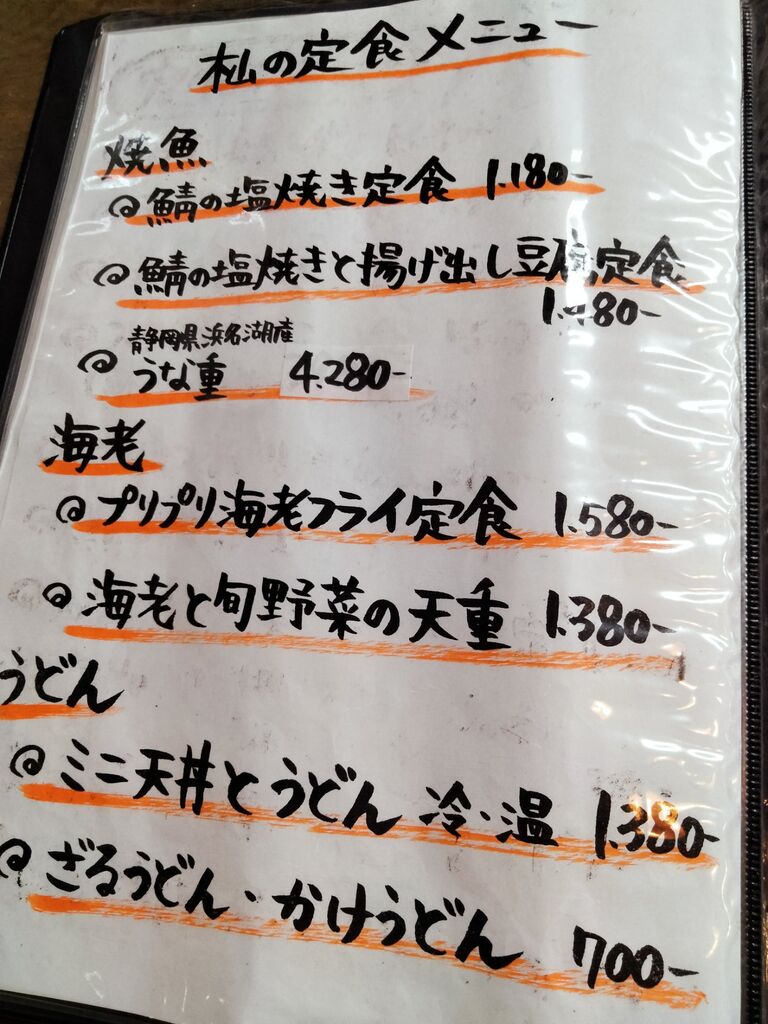 杣の定食メニュー
焼魚
鯖の塩焼き定食 1.180-
鯖の塩焼きと揚げ出し豆腐定食
1.480-
静岡県浜名湖産
うな重 4.280-
海老
プリプリ海老フライ定食 1.580-
海老と旬野菜の天重 1.380-
うどん
ミニ天丼とうどん 冷・温 1.380-
ざるうどん・かけうどん 700-